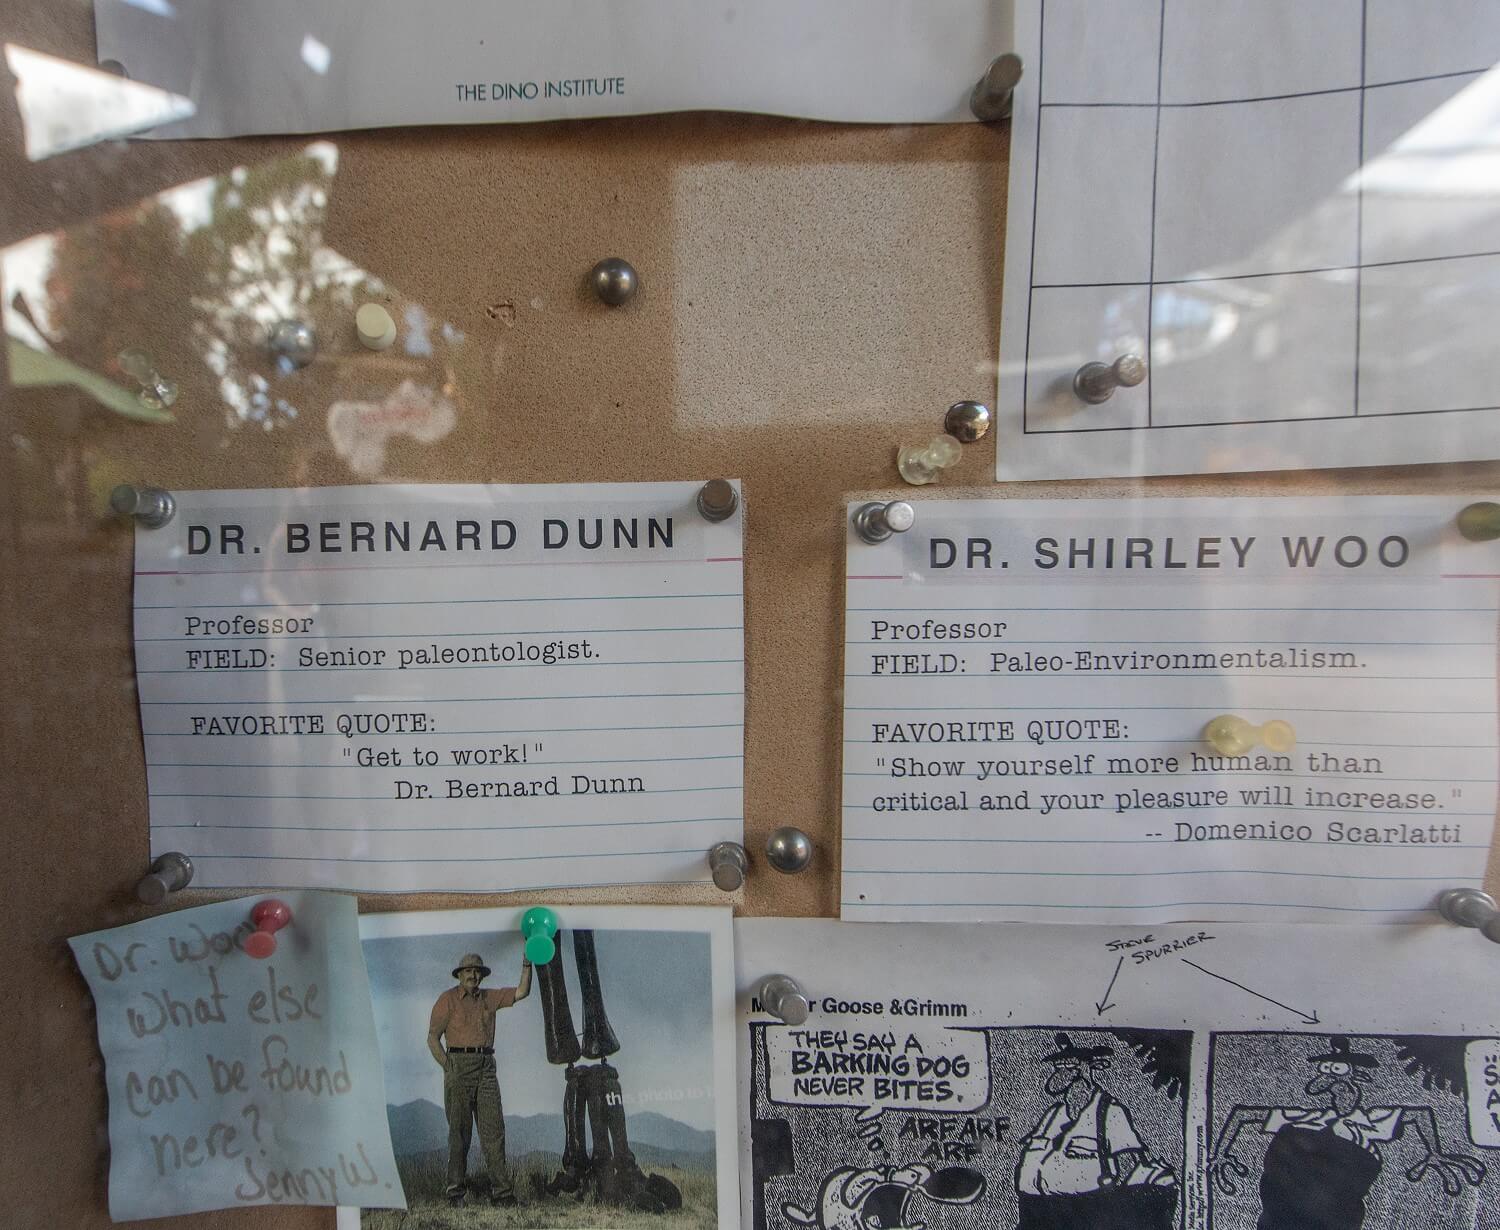 THE DINO INSTITUTE
DR. BERNARD DUNN
Professor
FIELD: Senior paleontologist.
FAVORITE QUOTE:
"Get to work!"
Dr. Bernard Dunn
DR. SHIRLEY WOO
Professor
FIELD: Paleo-Environmentalism.
FAVORITE QUOTE:
"Show yourself more human than
critical and your pleasure will increase."
-- Domenico Scarlatti
Dr. Woo
What else
can be found
here?
Jenny W.
this photo to
STEVE
SPURRIER
r Goose &Grimm
THEY SAY A
BARKING DOG
NEVER BITES.
ARF ARF
ARF